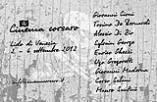 Cinema corsaro
Lido di Venezia
1 - 6 settembre 2012
Giovanni Cioni
Tonino De Bernardi
Alessio Di Zio
Sylvain George
Enrico Ghezzi
Ugo Gregoretti
Giovanni Maderna
Mauro Santini